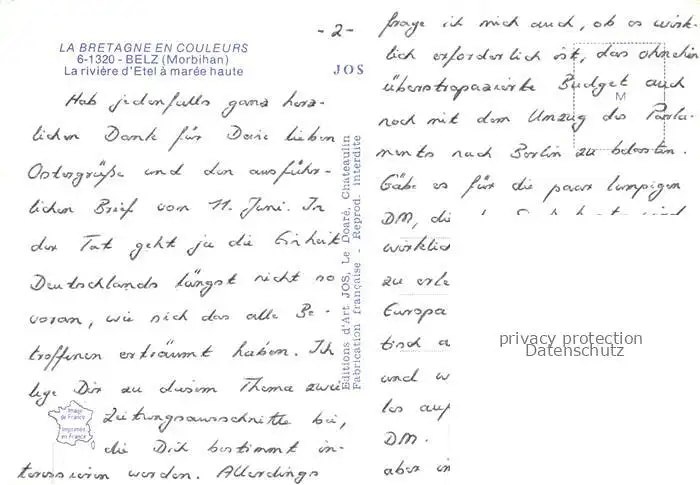 - 2 -
LA BRETAGNE EN COULEURS
6-1320 - BELZ (Morbihan)
La rivière d'Etel à marée haute
JOS
Hab jedenfalls ganz herz-
lichen Dank für Deine lieben
Ostergrüße und den ausführ-
lichen Brief vom 11. Juni. In
der Tat geht ja die Einheit
Deutschlands längst nicht so
voran, wie sich das alle Be-
troffenen erträumt haben. Ich
lege Dir zu diesem Thema zwei
Zeitungsausschnitte bei,
die Dich bestimmt in-
teressieren werden. Allerdings
Image de France
Imprimée en France
Editions d'Art JOS, Le Doaré, Chateaulin
Fabrication française - Reprod. interdite
frage ich mich auch, ob es wirk-
lich erforderlich ist, das ohnehin
überstrapazierte Budget auch
M
noch mit dem Umzug des Parla-
ments nach Berlin zu belasten.
Gäbe es für die paar lumpigen
DM, di
wirklic
zu erle
Europa
tisch a
und w
los auf
DM.
aber in
privacy protection
Datenschutz